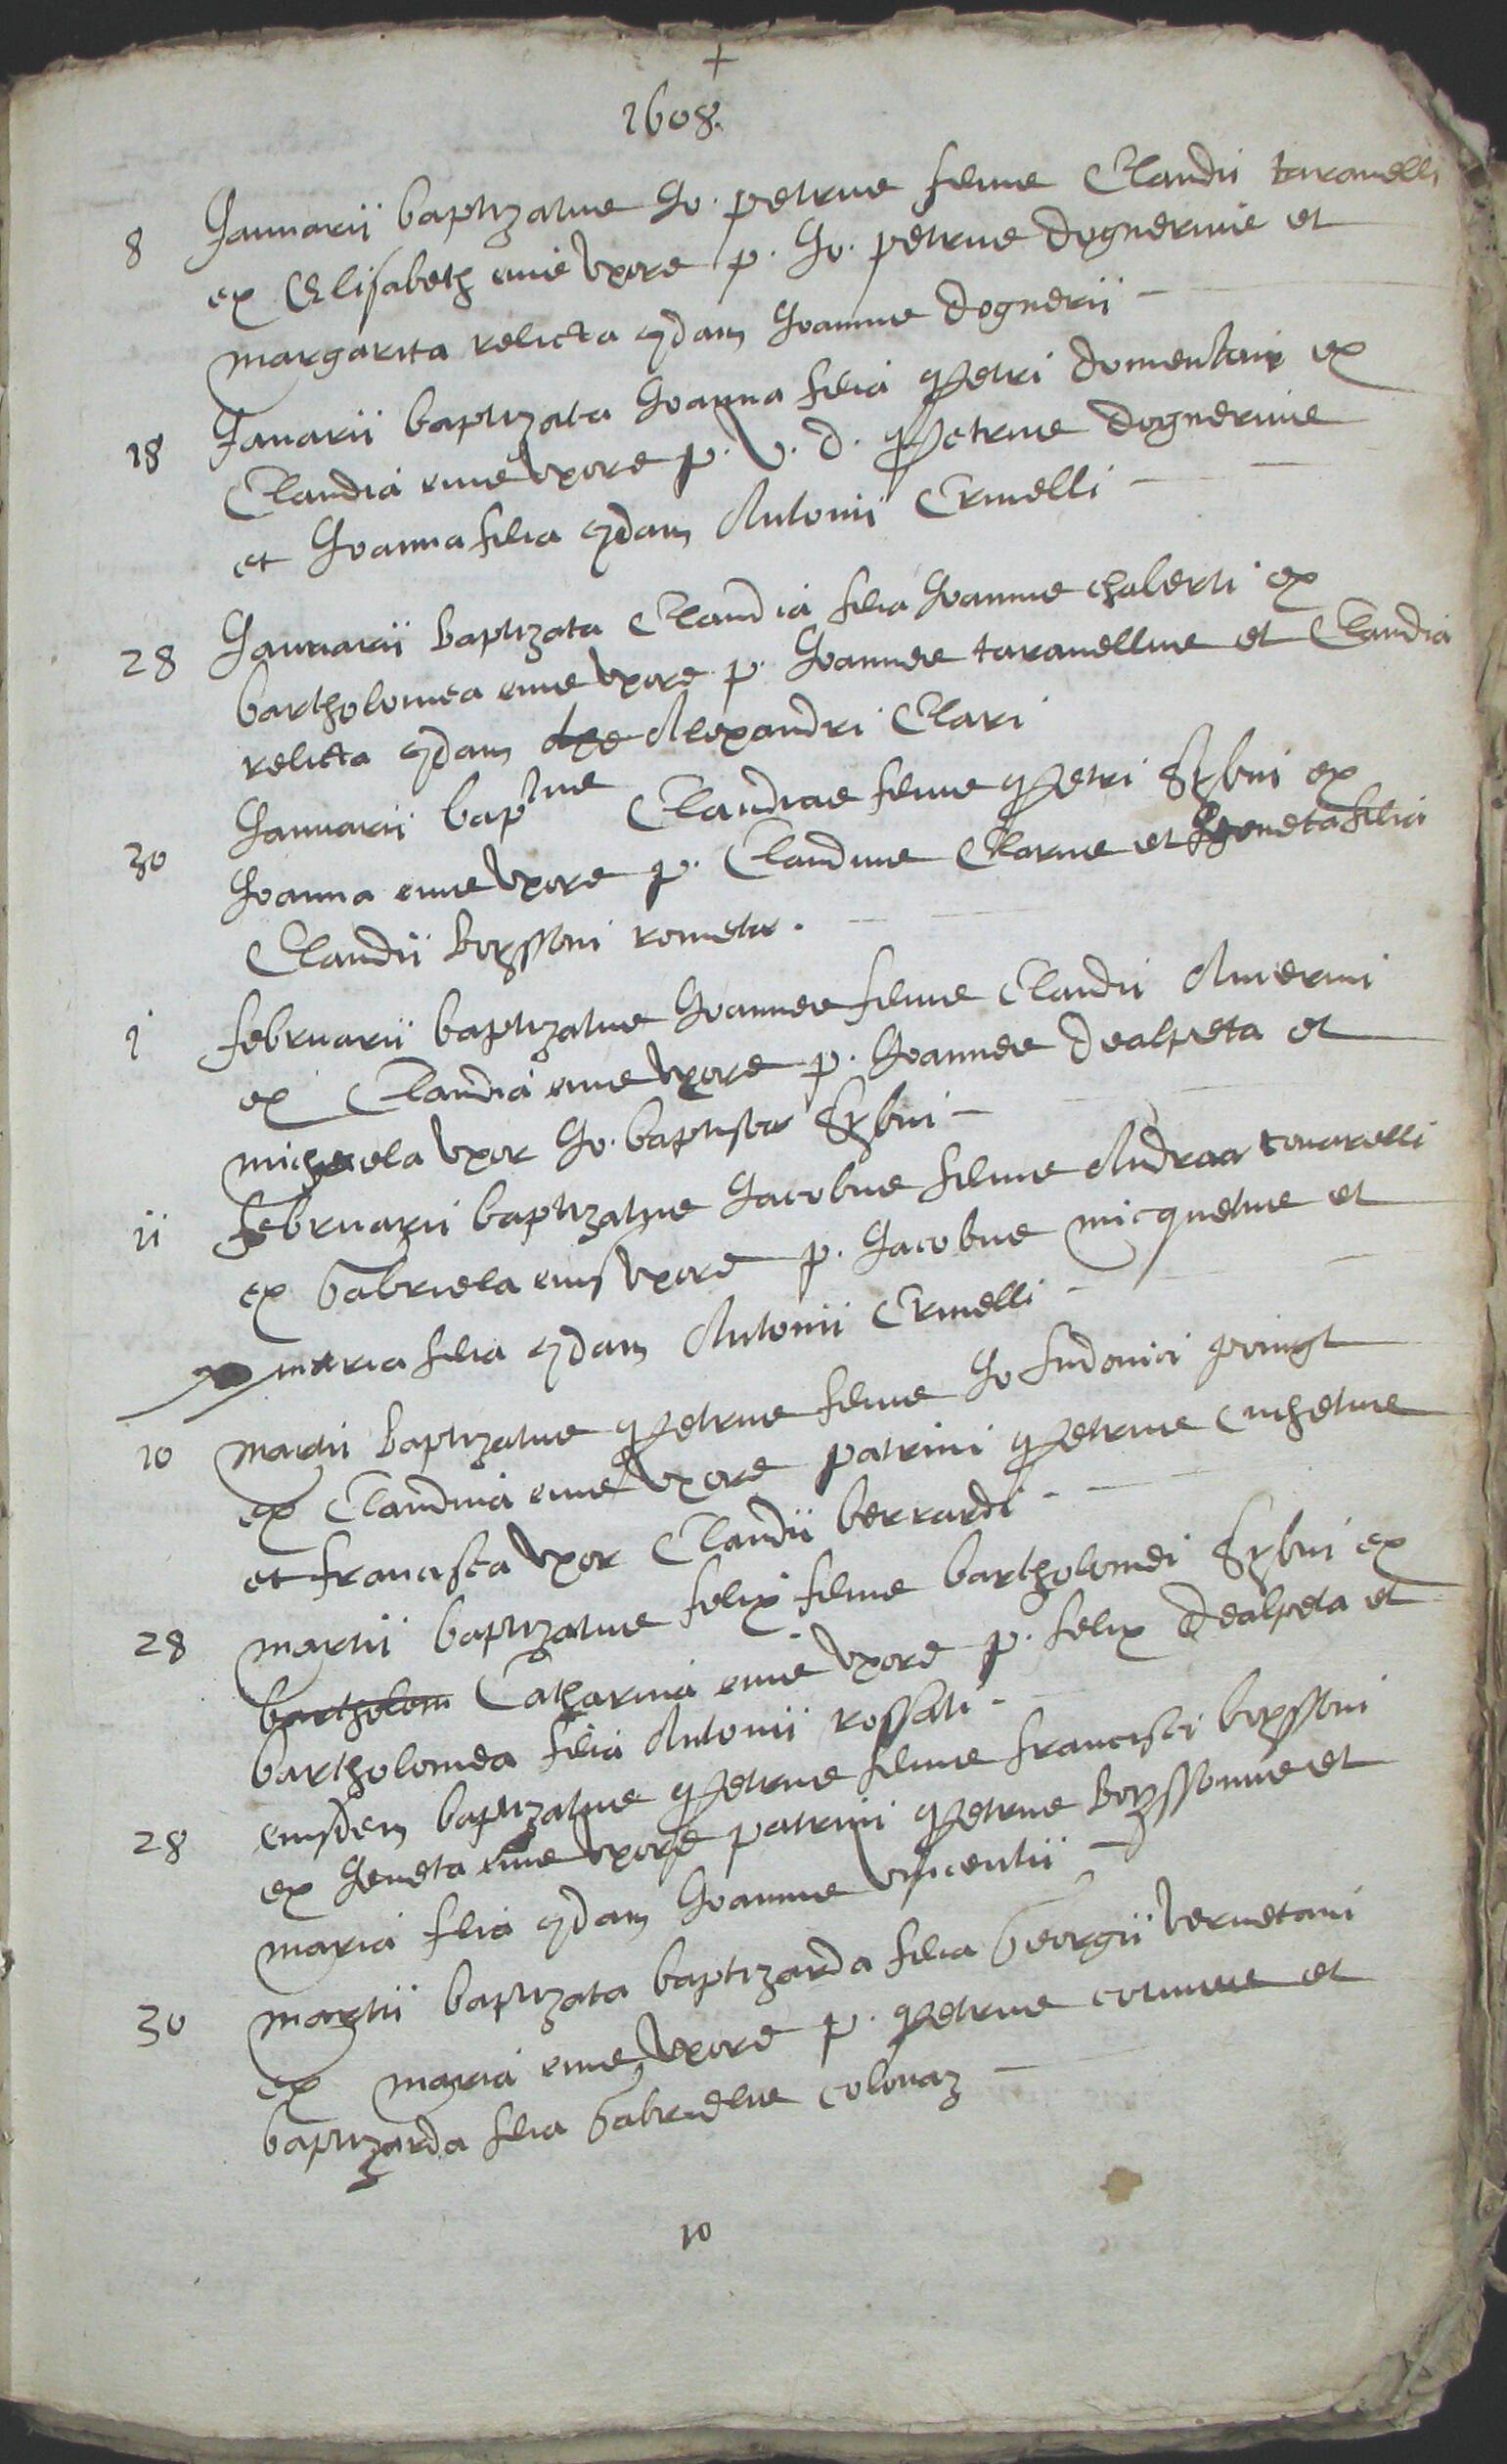 +
1608.
8 Januarii baptizatus Jo. petrus filius Claudii taramelli
ex Elisabeth eius uxore p. Jo. petrus dognerius et
margarita relicta qdam Joannis dognerii -
18 Januarii baptizata Joanna filia Petri ex
Claudia eius uxore p. V. d. Petrus dognerius
et Joanna filia qdam Antonii Crinelli -
28 Januarii baptizata Claudia filia Joannis chaberti ex
bartholomea eius uxore p. Joannes taramellus et Claudia
relicta qdam Alexandri Clari
30 Januarii baptus Claudius filius Petri Sybui ex
Joanna eius uxore p. Claudius Clarus et Jeoneta filia
Claudii Boyssoni
1 februarii baptizatus Joannes filius Claudii
ex Claudia eius uxore p. Joannes dealpeta et
michaela uxor Jo. baptistae Sybui -
11 februarii baptizatus Jacobus filius Andreae
ex Gabriela eius uxore p. Jacobus micquetus et
maria filia qdam Antonii Crinelli -
10 martii baptizatus Petrus filius Jo ludovici
ex Claudina eius uxore patrini Petrus
et francisca uxor Claudii berrardi -
28 martii baptizatus felix filius bartholomei Sybui ex
bartholom Catharina eius uxore p. felix dealpeta et
bartholomea filia Antonii rossati -
28 eiusdem baptizatus Petrus filius francisci boyssoni
ex Jeneta eius uxore patrini Petrus Boyssonus et
maria filia qdam Joannis vincentii -
30 martii baptizata baptizarda filia Georgii vernetani
ex maria eius uxore p. Petrus et
baptizarda filia Gabrielis colonaz -
10